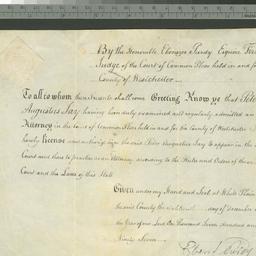 By the Honorable Ebenezer Purdy Esquire First
Judge of the Court of Common Pleas held in and for
County of Westchester
To all to whom these Presents shall come Greeting Know ye that Peter
Augustus Jay having been duly examined and regularly admitted an
Attorney in the Court of Common Pleas held in and for the County of Westchester
hereby license and authorize him the said Peter Augustus Jay to appear in the
Court and there to practice as an Attorney according to the Rules and Orders of the
Court and the Laws of this State
Given under my Hand and Seal at White Plains
the said County the day of December
the Year of our Lord One Thousand Seven Hundred and
Ninety Seven
Eben Purdy